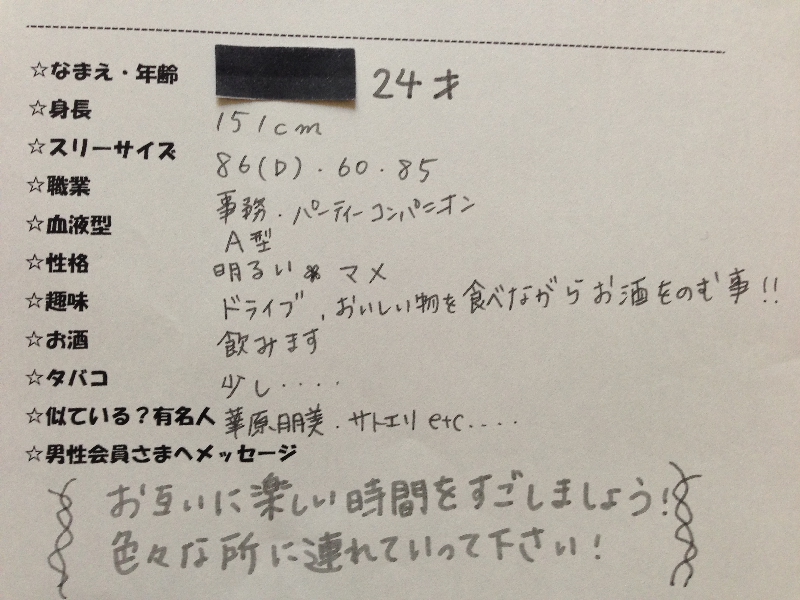 ☆なまえ・年齢 24才
☆身長 151cm
☆スリーサイズ 86(D)・60・85
☆職業 事務・パーティーコンパニオン
☆血液型 A型
☆性格 明るい マメ
☆趣味 ドライブ、おいしい物を食べながらお酒をのむ事!!
☆お酒 飲みます
☆タバコ 少し・・・・
☆似ている?有名人 華原朋美・サトエリ etc....
☆男性会員さまへメッセージ
お互いに楽しい時間をすごしましょう!
色々な所に連れていって下さい!